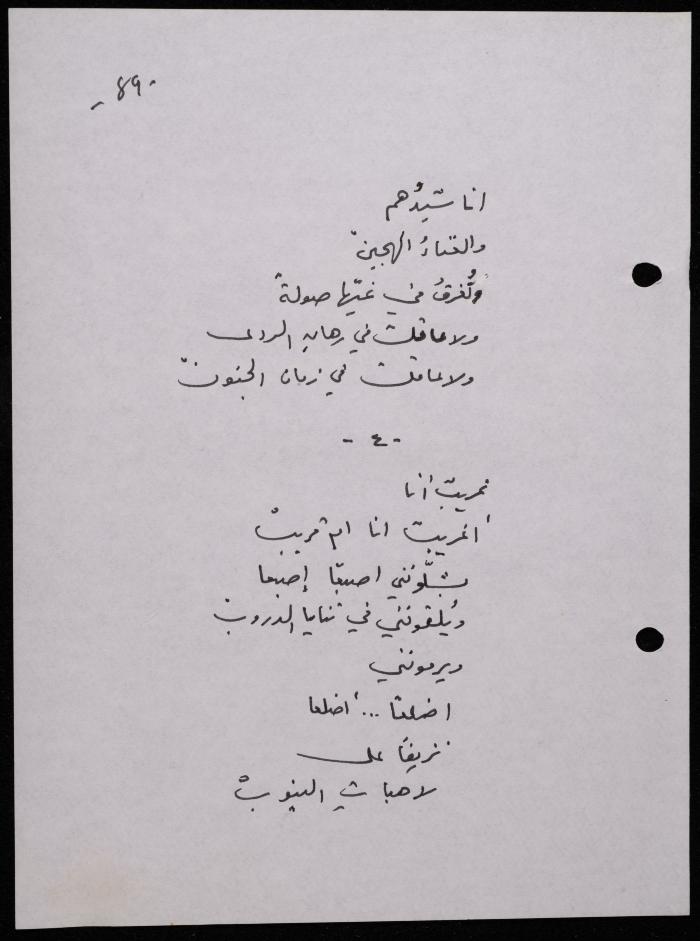 -٨٩-
انا سيدُهم
والغناءُ الهجينْ
وتُغرقُ في غيّها صولةً
ولا عاقلٌ في رهانِ الردى
ولا عاقلٌ في زمان الجنونْ
-٤-
غريبٌ أنا
أغريبٌ انا ام قريبْ
يشلّونني اصبعًا إصبعا
ويُلقونني في ثنايا الدروبْ
ويرمونني
اضلعًا ... أضلعا
نزيفًا على
لاهباتِ